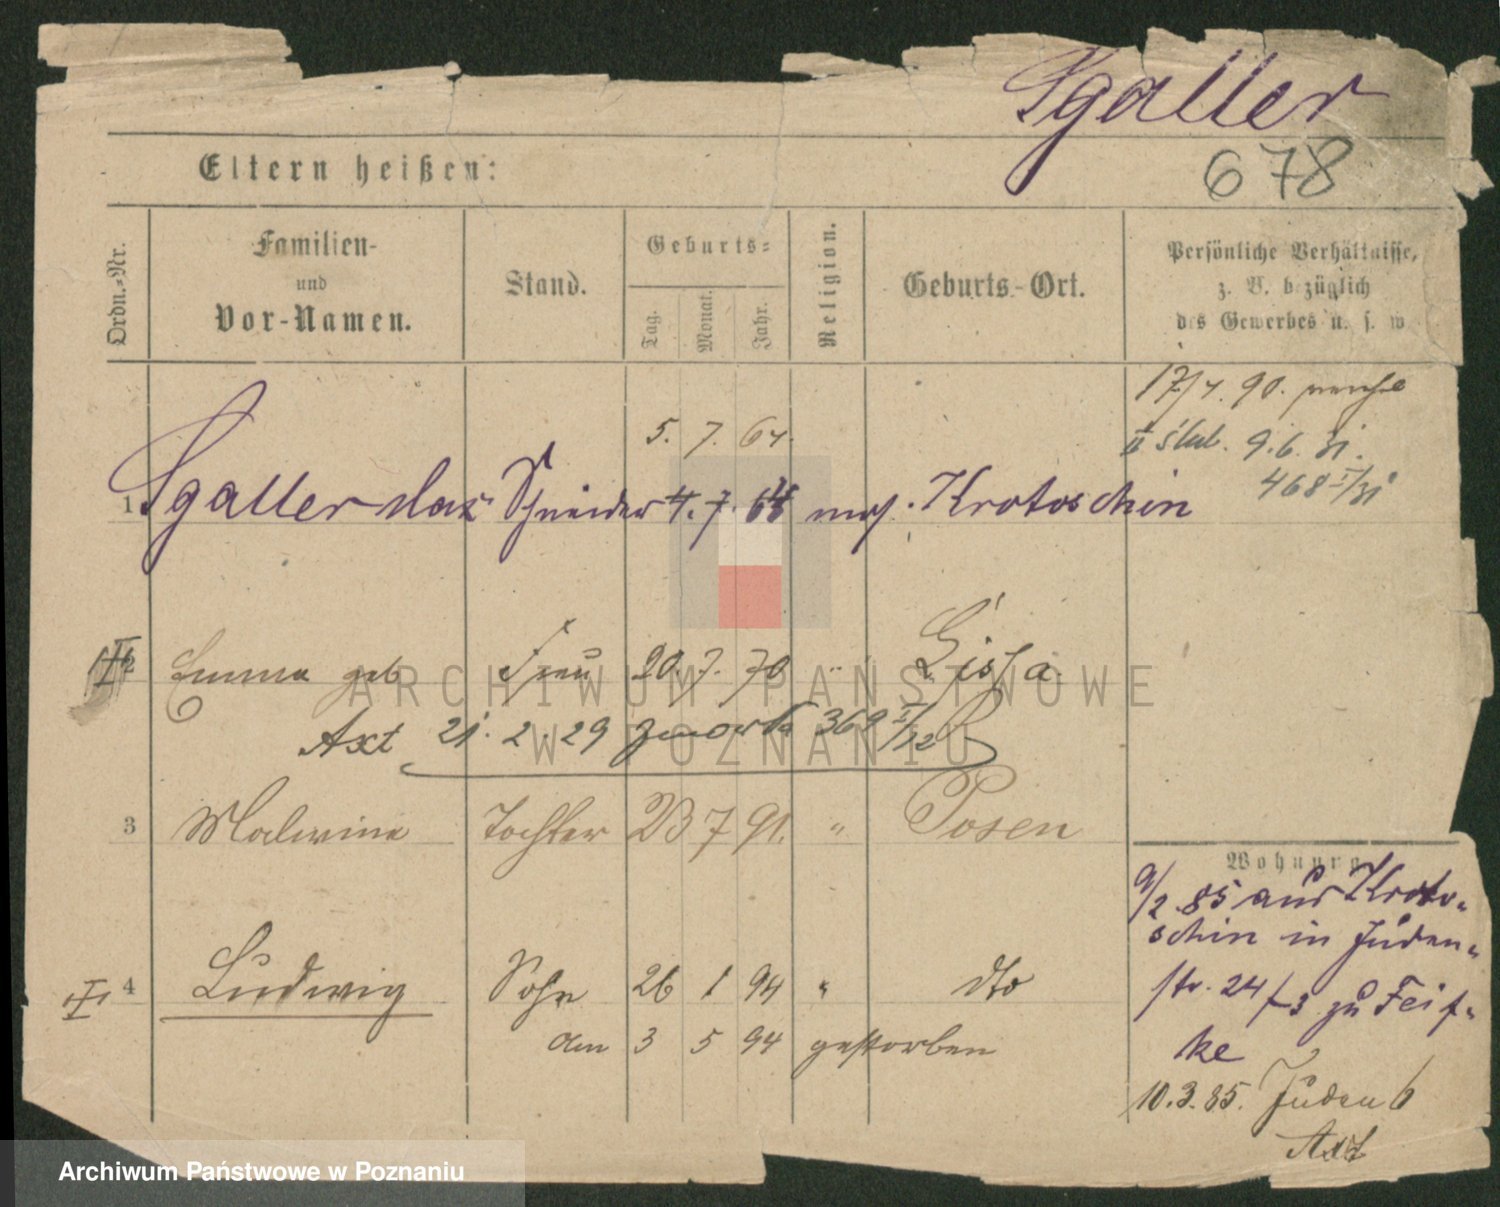 Sgaller
678
Eltern heißen:
Ordn.-Nr.
Familien-
und
Vor-Namen.
Stand.
Geburts-
Tag.
Monat.
Jahr.
Religion.
Geburts-Ort.
Persönliche Verhältnisse,
z. B. bezüglich
des Gewerbes u. s. w.
17/4. 90.
5. 7. 64.
II ślub. 9.6.31.
468 I/31
1 Sgaller Max Schneider 4. 7. mos. Krotoschin
2 Emma geb Frau 20. 7. 70 " Lissa
Axt 21. 2. 29 zmarła 369 I/12
3 Malwine Tochter 23 7 91. " Posen
Wohnung
9/2 85 aus Kroto-
schin in Juden-
str. 24 f3 zu Feif-
ke
4 Ludwig Sohn 26 1 94 " dto
am 3 5 94 gestorben
10.3.85. Juden 6
Axt
ARCHIWUM PAŃSTWOWE
W POZNANIU
Archiwum Państwowe w Poznaniu